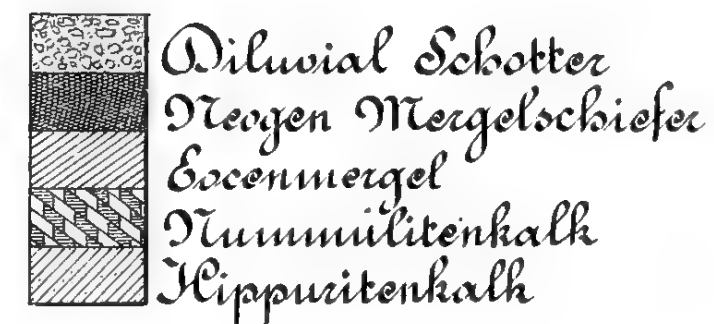 Diluvial Schotter
Neogen Mergelschiefer
Eocenmergel
Nummulitenkalk
Hippuritenkalk